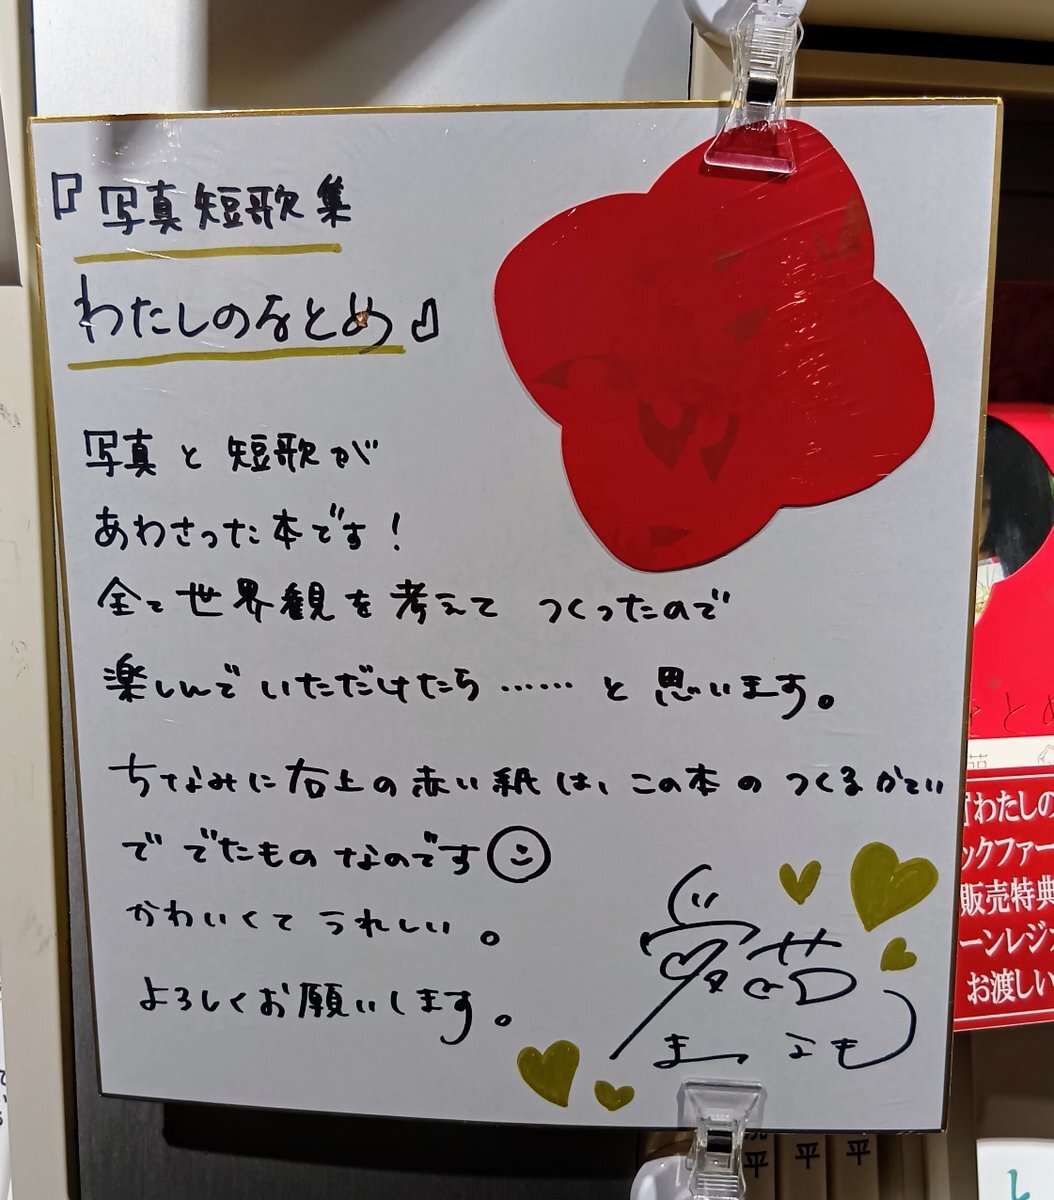 『写真短歌集
わたしのをとめ』
写真と短歌が
あわさった本です!
全て世界観を考えて つくったので
楽しんでいただけたら……と思います。
ちなみに右上の赤い紙は、この本のつくるかてい
ででたものなのです
かわいくてうれしい。
よろしくお願いします。
をとめ
『わたしの
ックファー
販売特典
ーンレジ
お渡しい
平
平
平
と